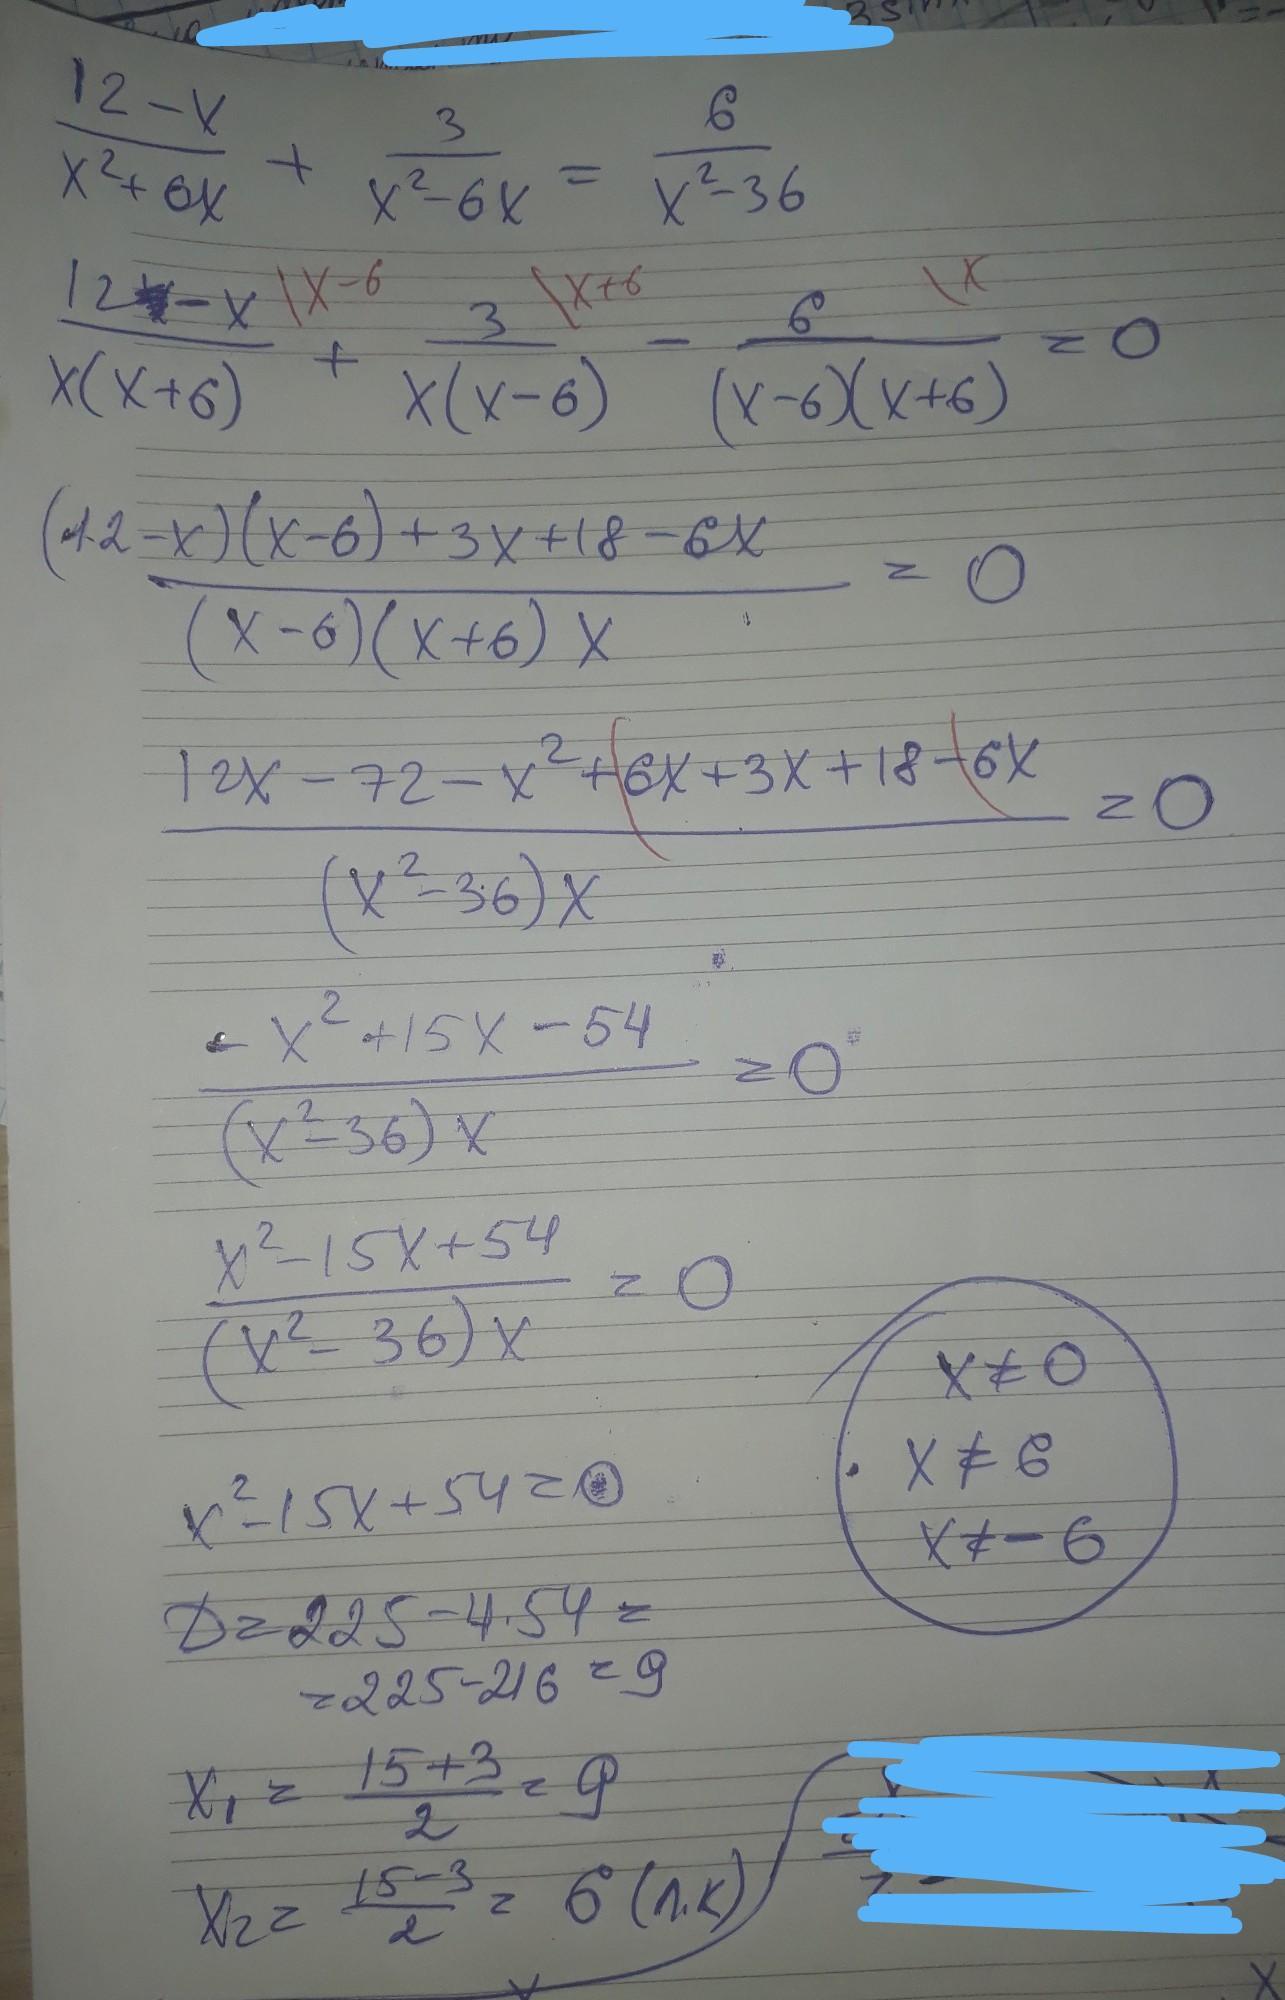 3 sin
(12-x)/(x²+6x) + 3/(x²-6x) = 6/(x²-36)
(12-x)/(x(x+6)) \x-6 + 3/(x(x-6)) \x+6 - 6/((x-6)(x+6)) \x = 0
((12-x)(x-6)+3x+18-6x)/((x-6)(x+6)x) = 0
(12x-72-x²+6x+3x+18-6x)/((x²-36)x) = 0
(-x²+15x-54)/((x²-36)x) = 0
(x²-15x+54)/((x²-36)x) = 0
x≠0
x≠6
x≠-6
x²-15x+54=0
D=225-4·54=
=225-216=9
x₁ = (15+3)/2 = 9
x₂ = (15-3)/2 = 6 (п.к)